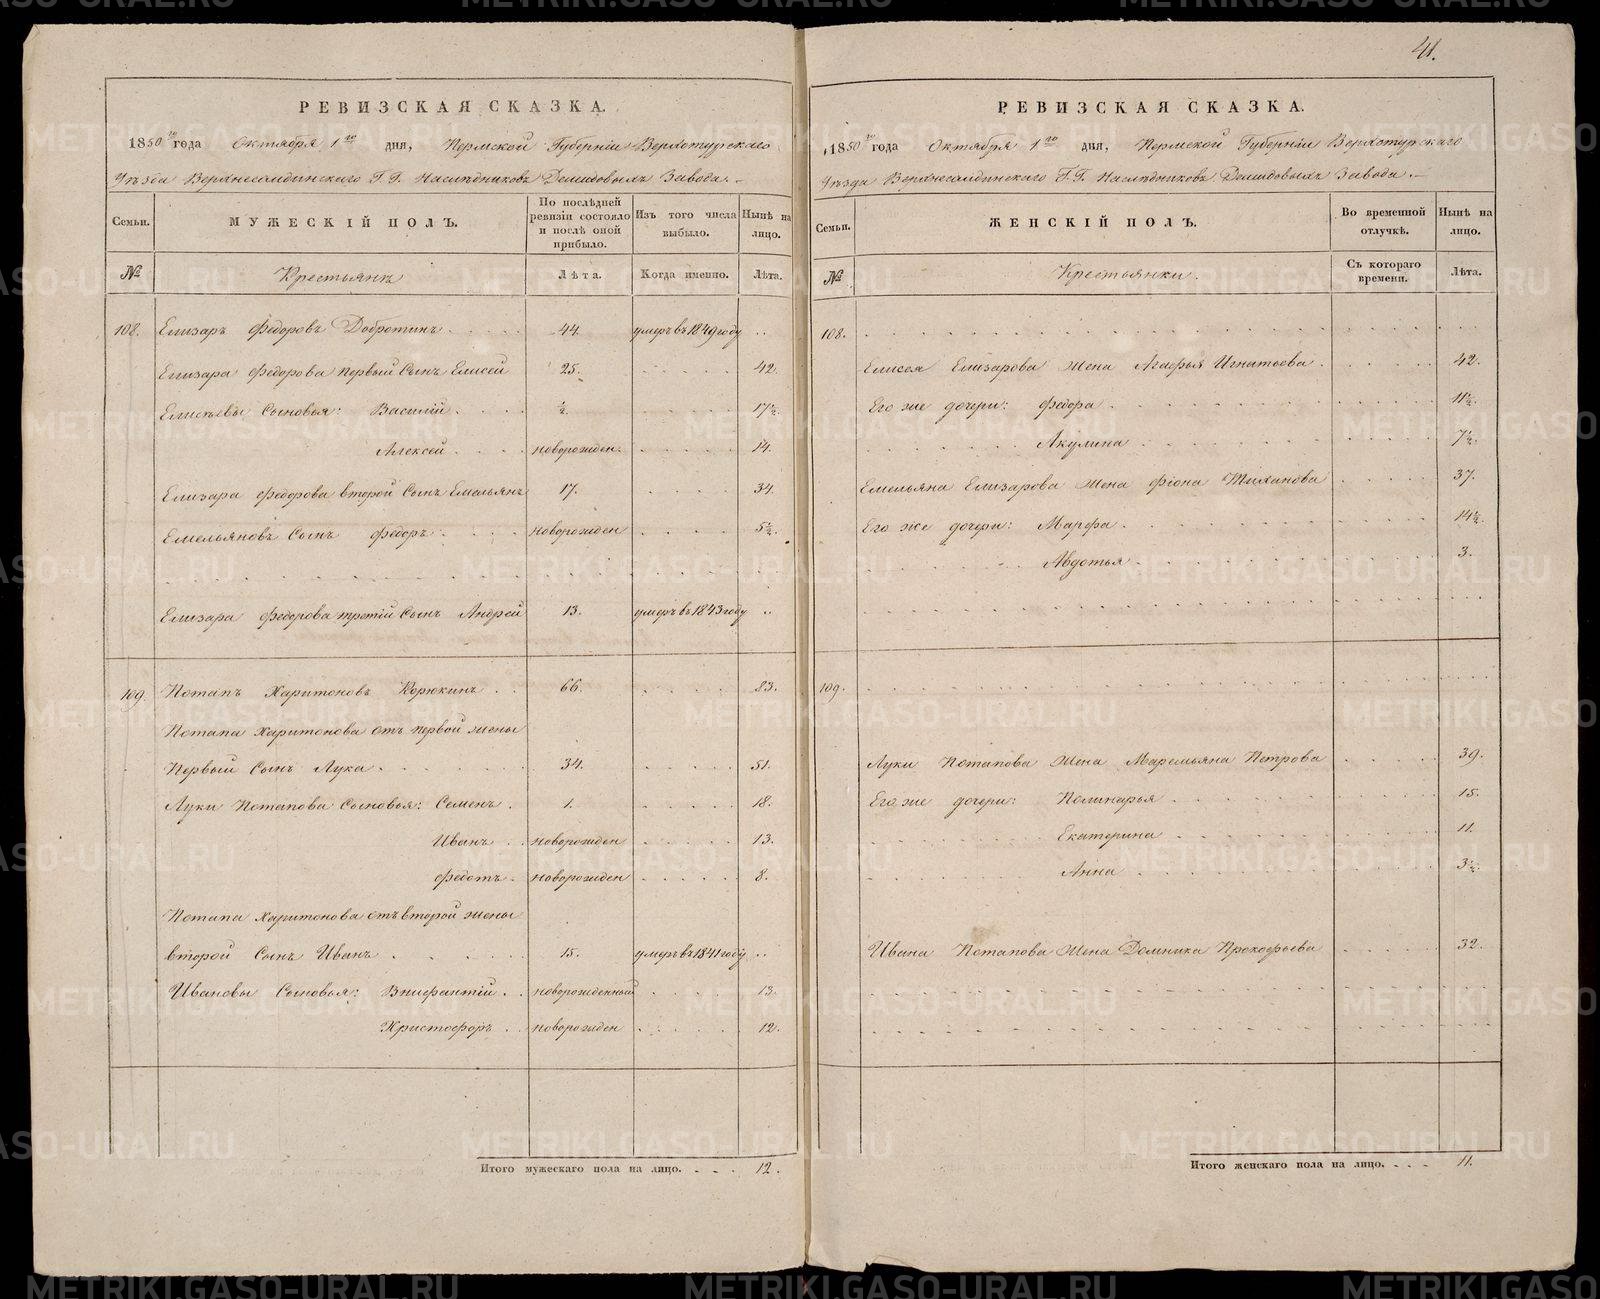 41.
РЕВИЗСКАЯ СКАЗКА.
1850го года Октября 1го дня, Пермской Губерніи Верхотурскаго
Уѣзда Верхнесалдинскаго Г.Г. Наслѣдниковъ Демидовыхъ Завода.
Семьи. МУЖЕСКІЙ ПОЛЪ. По послѣдней ревизіи состояло и послѣ оной прибыло. Изъ того числа выбыло. Нынѣ на лицо.
№ Крестьянъ Лѣта. Когда именно. Лѣта.
108. Елизаръ Федоровъ Добротинъ 44. умеръ въ 1849 году
Елизара Федорова первый Сынъ Елисей 25. 42.
Елисѣевы Сыновья: Василій ½. 17½.
Алексей новорожден. 14.
Елизара Федорова второй Сынъ Емельянъ 17. 34.
Емельяновъ Сынъ Федоръ новорожден 5½.
Елизара Федорова третій Сынъ Андрей 13. умеръ въ 1843 году
109. Потапъ Харитоновъ Корюкинъ 66. 83.
Потапа Харитонова отъ первой жены
Первый Сынъ Лука 34. 51.
Луки Потапова Сыновья: Семенъ 1. 18.
Иванъ новорожден 13.
Федотъ новорожден 8.
Потапа Харитонова отъ второй жены
второй Сынъ Иванъ 15. умеръ въ 1841 году
Ивановы Сыновья: Внифантій новорожденный 13.
Христофоръ новорожден 12.
Итого мужескаго пола на лицо. 12.
РЕВИЗСКАЯ СКАЗКА.
1850го года Октября 1го дня, Пермской Губерніи Верхотурскаго
Уѣзда Верхнесалдинскаго Г.Г. Наслѣдниковъ Демидовыхъ Завода.
Семьи. ЖЕНСКІЙ ПОЛЪ. Во временной отлучкѣ. Нынѣ на лицо.
№ Крестьянки. Съ котораго времени. Лѣта.
108.
Елисея Елизарова жена Агафья Игнатьева 42.
Его же дочери: Федора 11½.
Акулина 7½.
Емельяна Елизарова жена Фіона Тиханова 37.
Его же дочери: Марфа 14½.
Авдотья 3.
109.
Луки Потапова жена Маремьяна Петрова 39.
Его же дочери: Полинарья 15.
Екатерина 11.
Анна 3½.
Ивана Потапова жена Домника Прокофьева 32.
Итого женскаго пола на лицо. 11.
METRIKI.GASO-URAL.RU